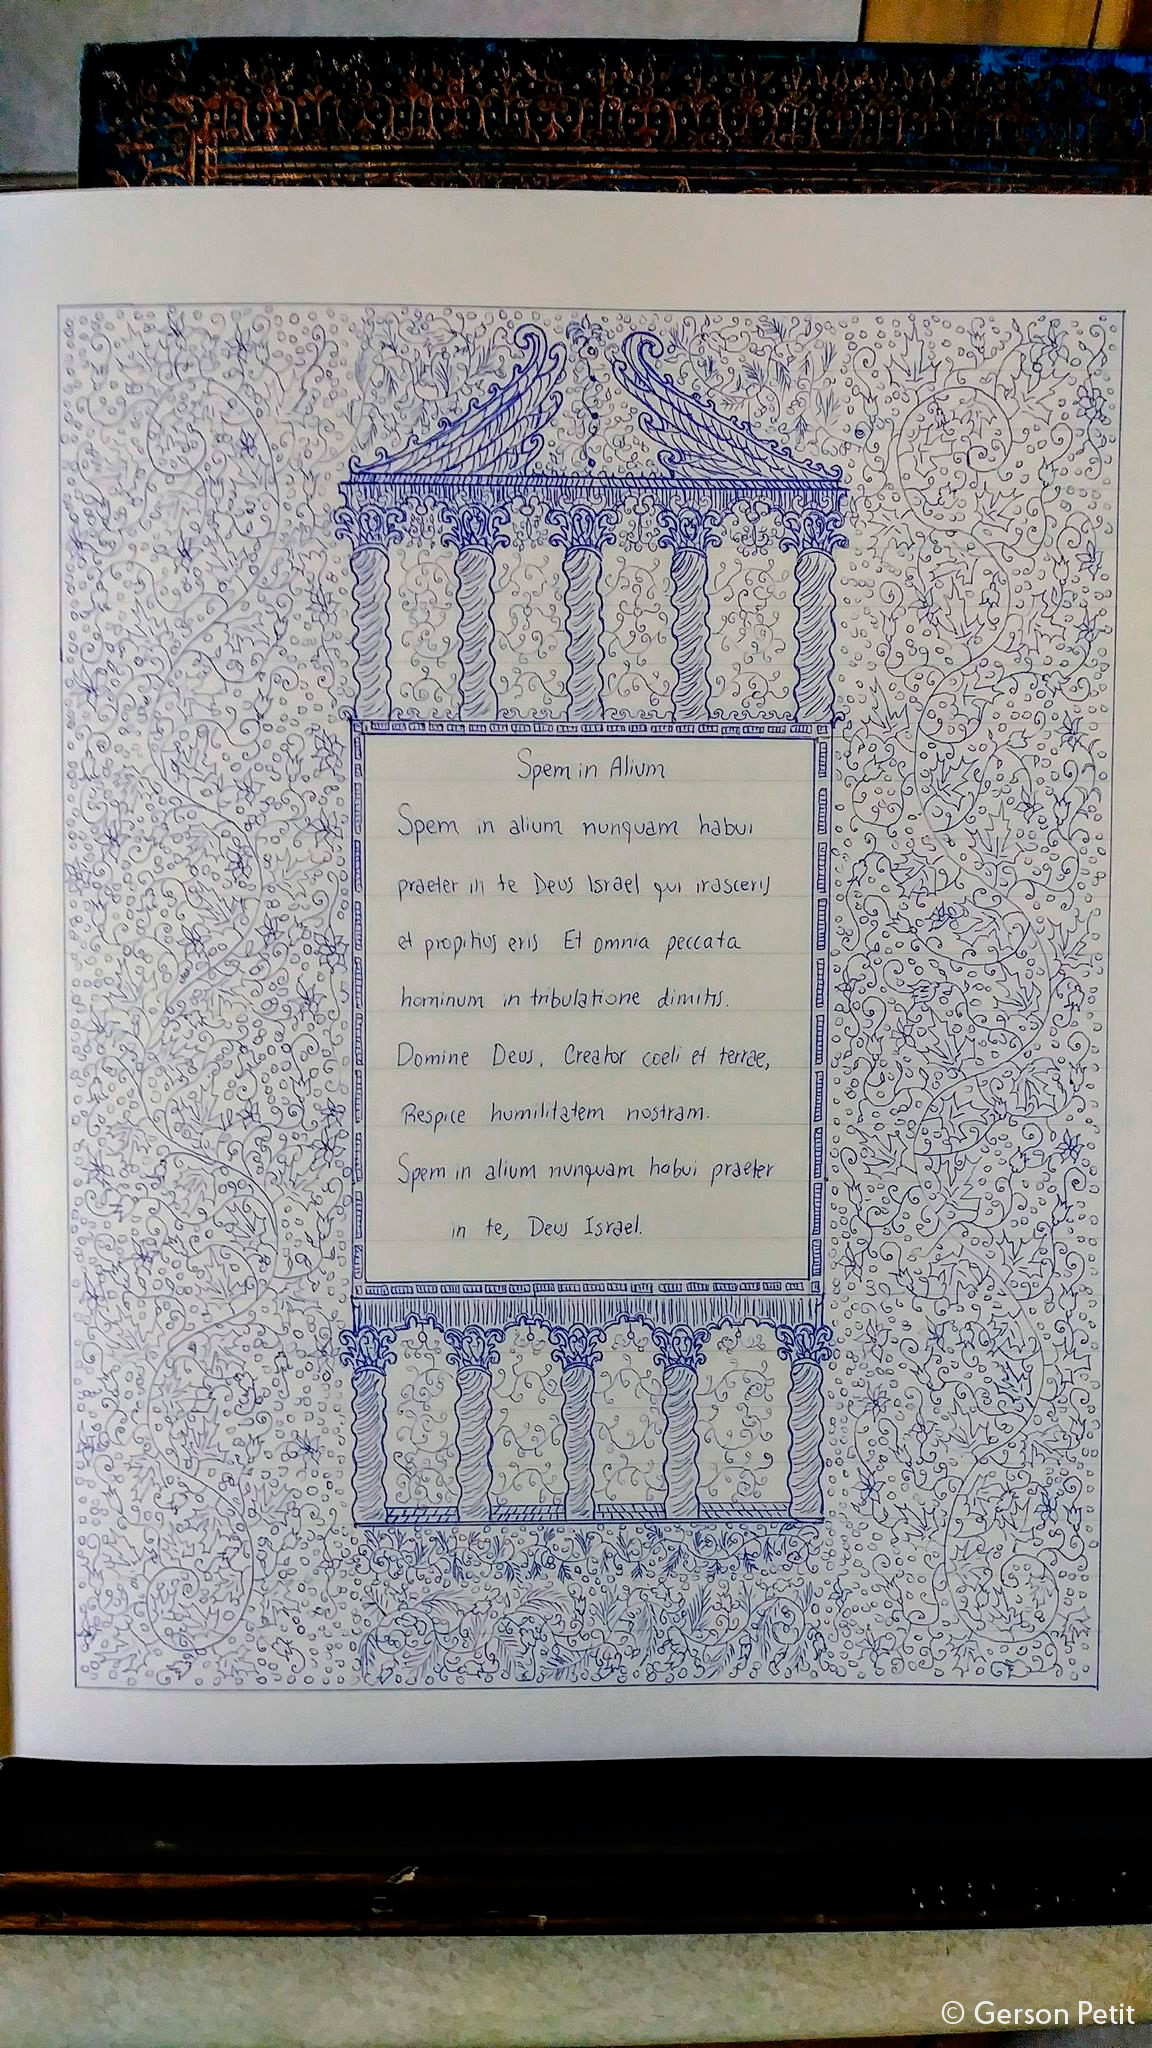 Spem in Alium
Spem in alium nunquam habui
praeter in te Deus Israel qui irasceris
et propitius eris Et omnia peccata
hominum in tribulatione dimitis.
Domine Deus, Creator coeli et terrae,
Respice humilitatem nostram.
Spem in alium nunquam habui praeter
in te, Deus Israel.
© Gerson Petit